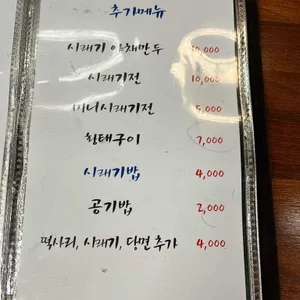 추가메뉴
시래기 야채만두 10,000
시래기전 10,000
미니시래기전 5,000
황태구이 7,000
시래기밥 4,000
공기밥 2,000
떡사리, 시래기, 당면 추가 4,000